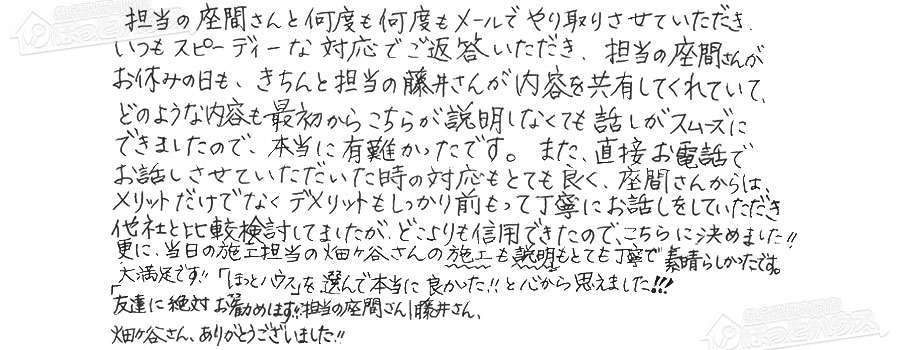 担当の座間さんと何度も何度もメールでやり取りさせていただき、
いつもスピーディーな対応でご返答いただき、担当の座間さんが
お休みの日も、きちんと担当の藤井さんが内容を共有してくれていて、
どのような内容も最初からこちらが説明しなくても話しがスムーズに
できましたので、本当に有難かったです。また、直接お電話で
お話しさせていただいた時の対応もとても良く、座間さんからは、
メリットだけでなくデメリットもしっかり前もって丁寧にお話しをしていただき
他社と比較検討してましたが、どこよりも信用できたので、こちらに決めました!!
更に、当日の施工担当の畑ヶ谷さんの施工も説明もとても丁寧で素晴らしかったです。
大満足です!!「ほっとハウス」を選んで本当に良かった!!と心から思えました!!!
友達に絶対お勧めします!!担当の座間さん、藤井さん、
畑ヶ谷さん、ありがとうございました!!
ほっとハウス
ほっとハウス